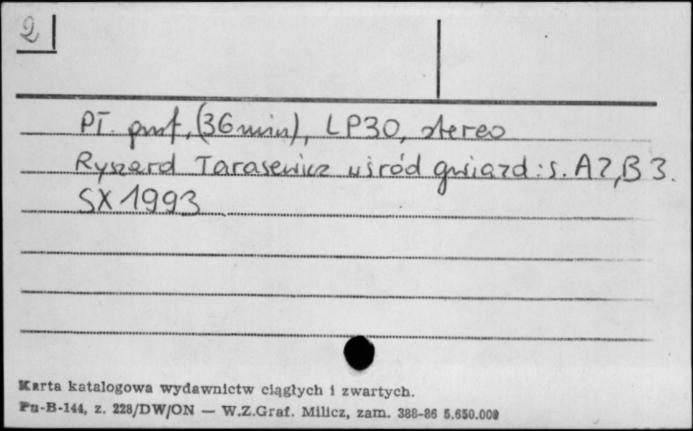 2
Pł. prof. (36 min), LP30, stereo
Ryszard Tarasewicz wśród gwiazd: s. A7, B3.
SX 1993
Karta katalogowa wydawnictw ciągłych i zwartych.
Pu-B-144, z. 228/DW/ON — W.Z.Graf. Milicz, zam. 388-86 5.650.000